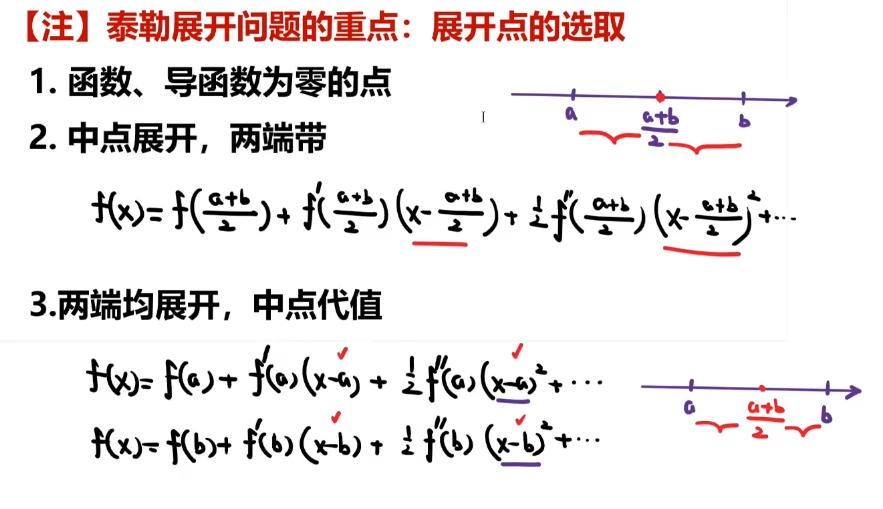 【注】泰勒展开问题的重点：展开点的选取
1. 函数、导函数为零的点
a  a+b/2  b
2. 中点展开，两端带
f(x)=f(a+b/2)+f′(a+b/2)(x-a+b/2)+½f″(a+b/2)(x-a+b/2)²+…
3.两端均展开，中点代值
f(x)=f(a)+f′(a)(x-a)+½f″(a)(x-a)²+…
a  a+b/2  b
f(x)=f(b)+f′(b)(x-b)+½f″(b)(x-b)²+…